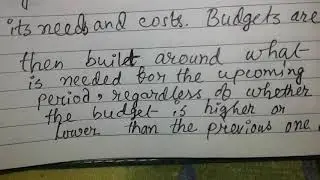 its needs and costs. Budgets are
then built around what
is needed for the upcoming
period, regardless of whether
the budget is higher or
lower than the previous one.